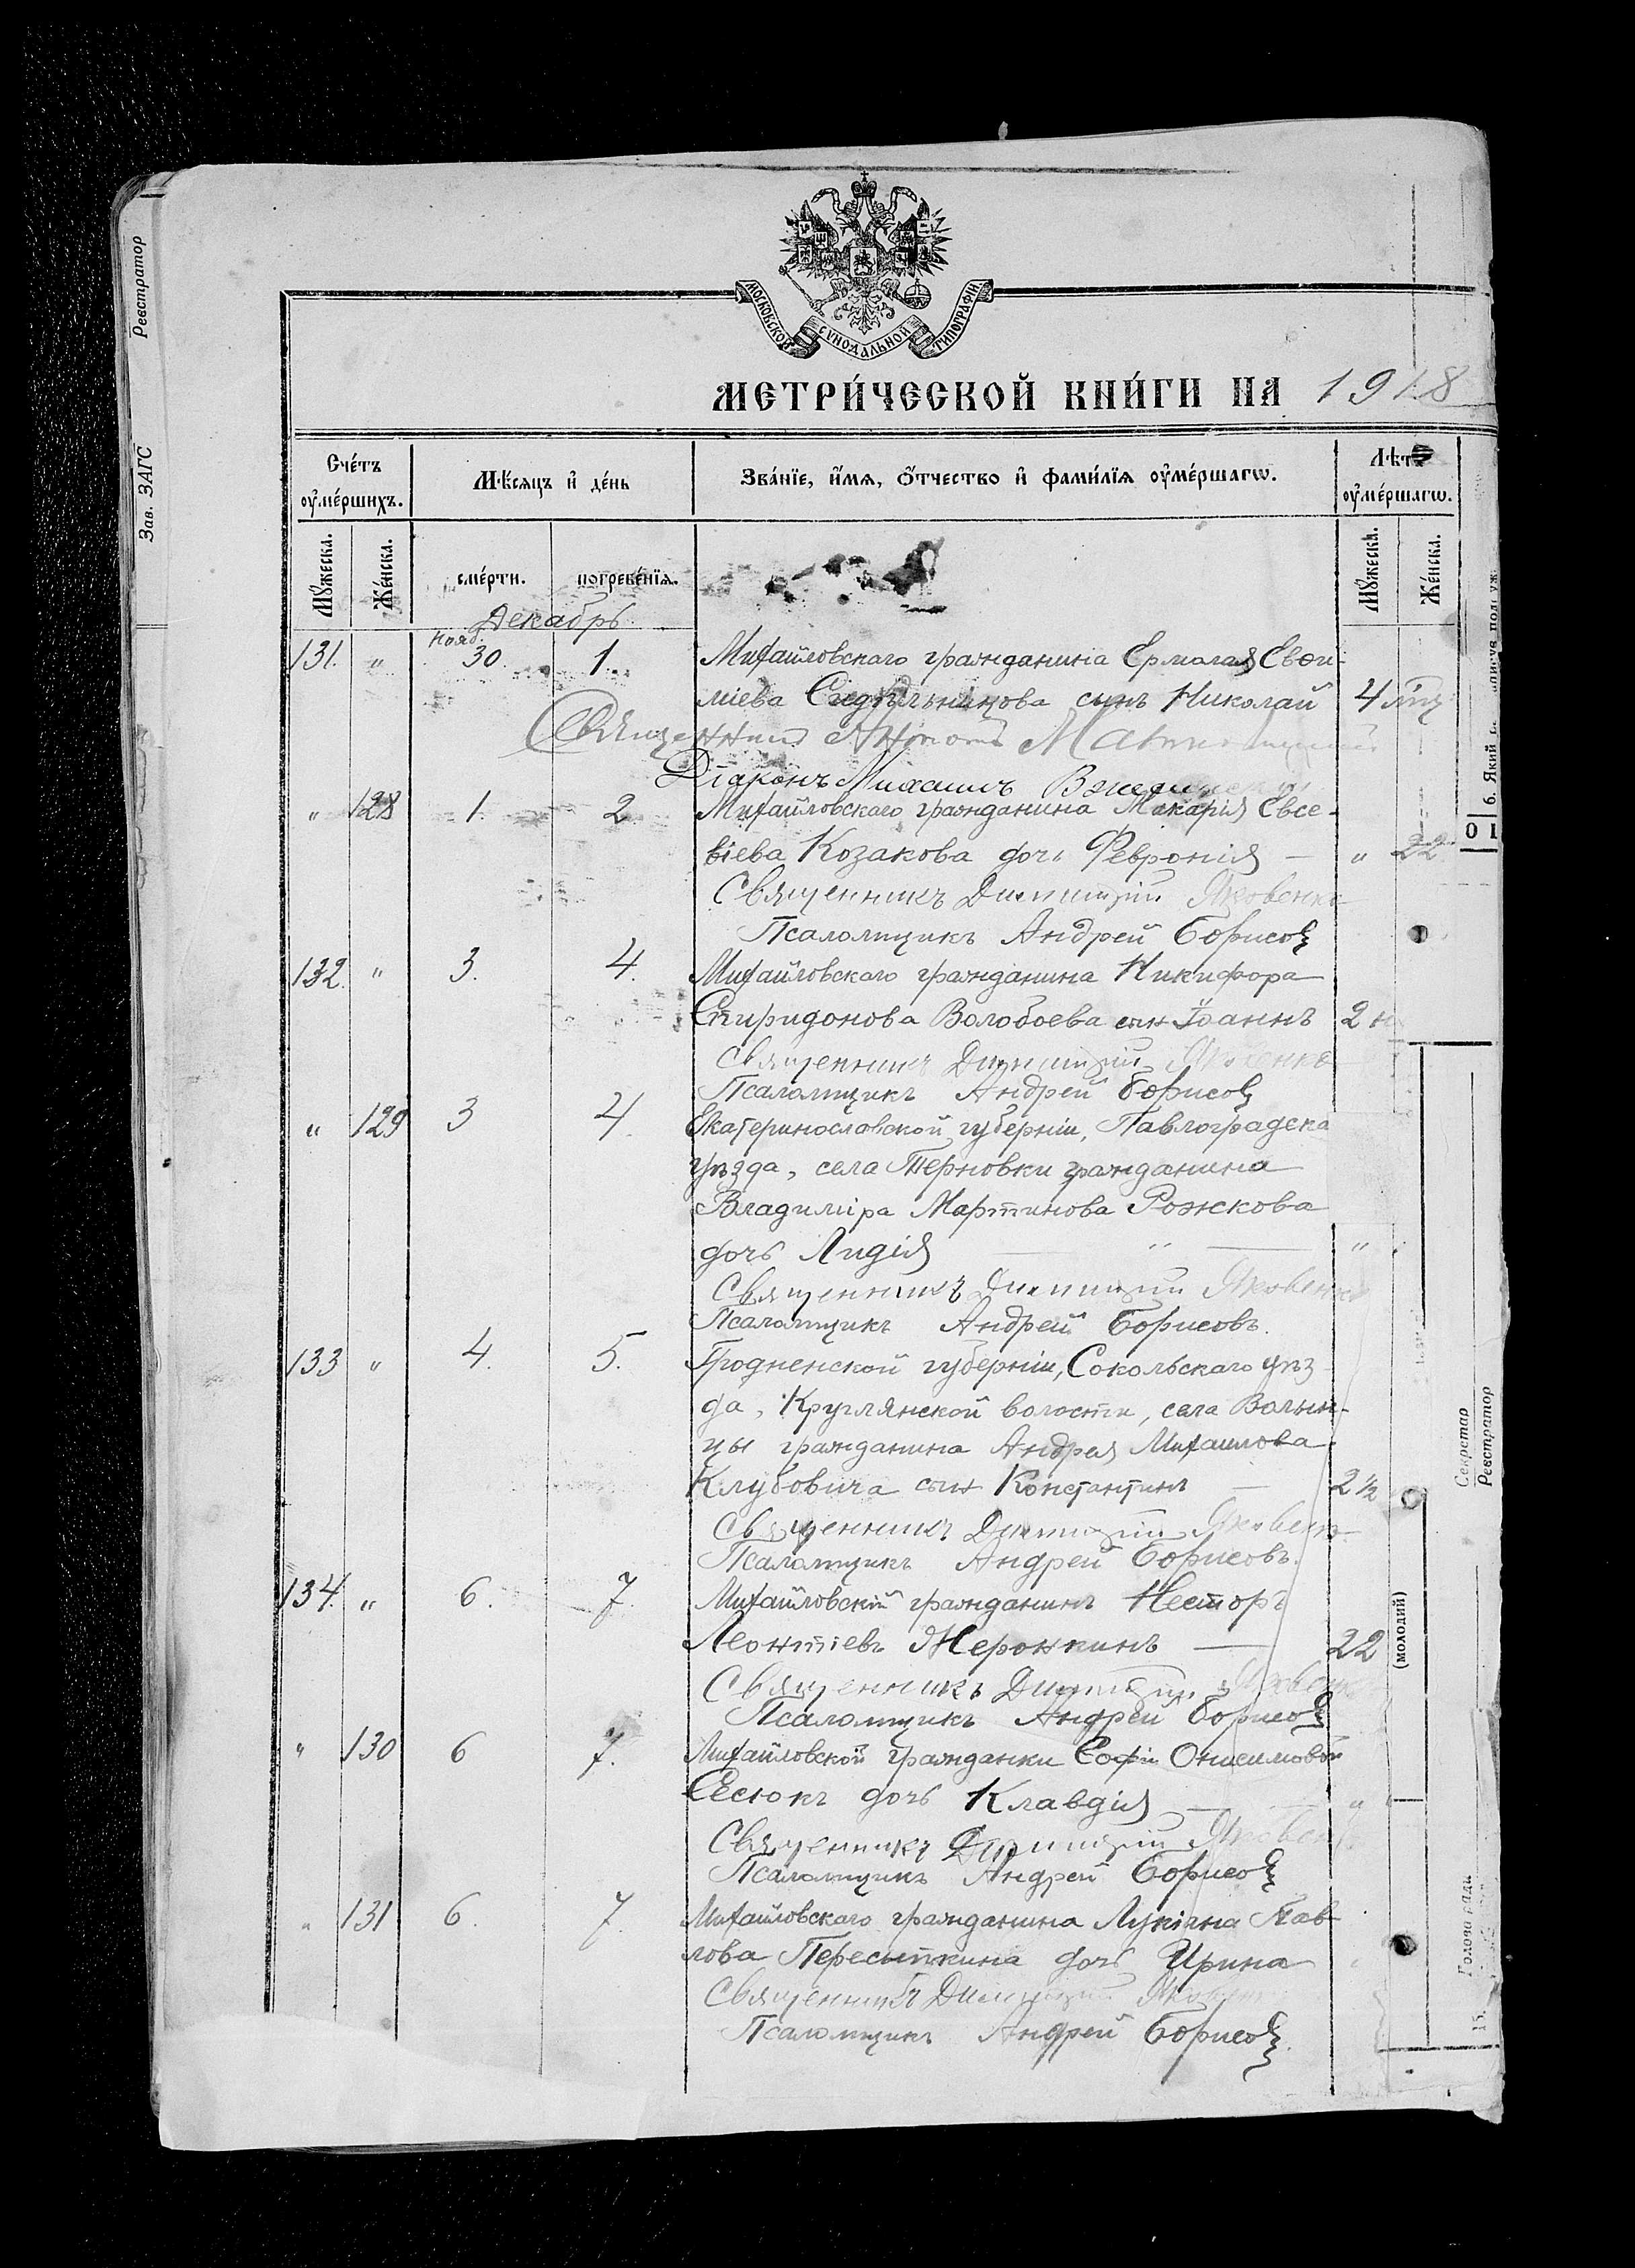 Реєстратор
Зав. ЗАГС
МОСКОВСКОЙ СѴНОДАЛЬНОЙ ТИПОГРАФІИ
МЕТРИ́ЧЕСКОЙ КНИ́ГИ НА 1918
Сче́тъ оу҆ме́ршихъ.
Мѣ́сяцъ и҆ де́нь
Зва́нїе, и҆́мѧ, ѻ҆́тчество и҆ фами́лїѧ оу҆ме́ршагѡ.
Лѣта оу҆ме́ршагѡ.
Мꙋ́жеска. Же́нска. сме́рти. погребе́нїѧ. Мꙋ́жеска. Же́нска.
Декабрь
131. " Нояб. 30. 1. Михайловскаго гражданина Ермолая Евѳи-
міева Сидѣльникова сынъ Николай 4
Священникъ Антоній
Діаконъ Михаилъ
" 128 1. 2. Михайловскаго гражданина Макарія Евсе-
віева Козакова дочь Февронія — " 22
Священникъ Димитрій Яковенко
Псаломщикъ Андрей Борисовъ
132. " 3. 4. Михайловскаго гражданина Никифора
Спиридонова Волобоева сын Іоаннъ 2 н
Священникъ Димитрій Яковенко
Псаломщикъ Андрей Борисовъ
" 129 3 4. Екатеринославской губерніи, Павлоградска
уѣзда, села Терновки гражданина
Владиміра Мартинова Рожкова
дочь Лидія — " — "
Священникъ Димитрій Яковенко
Псаломщикъ Андрей Борисовъ.
133 " 4. 5. Гродненской губерніи, Сокольскаго уѣз-
да, Круглянской волости, села Волын-
цы гражданина Андрея Михаилова
Клубовича сын Константинъ — 2 ½
Священникъ Димитрій Яковенко
Псаломщикъ Андрей Борисовъ.
134. " 6. 7. Михайловскій гражданинъ Несторъ
Леонтіевъ Жеронкинъ — 22
Священникъ Димитрій Яковенко
Псаломщикъ Андрей Борисовъ
" 130 6 7. Михайловской гражданки Софіи Онисимовой
Сесюкъ дочь Клавдія — "
Священникъ Димитрій Яковенко
Псаломщикъ Андрей Борисовъ
" 131 6. 7. Михайловскаго гражданина Лукіана Пав-
лова Пересыпкина дочь Ирина
Священникъ Димитрій
Псаломщикъ Андрей Борисовъ.
6. Який
0 1
Секретар
Реєстратор
(молодий)
Голова ради
15.